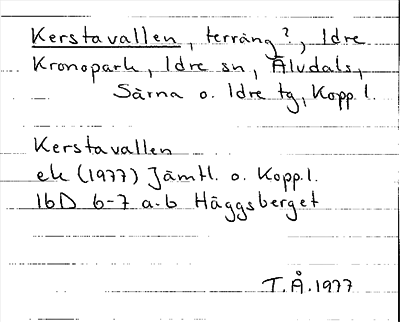 Kerstavallen, terräng?, Idre
Kronopark, Idre sn, Älvdals,
Särna o. Idre tg, Kopp.l.
Kerstavallen
ek (1977) Jämtl. o. Kopp.l.
16D 6-7 a-b Häggsberget
T.Å.1977